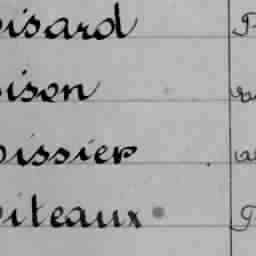 oisard
ison
oissier
oiteaux